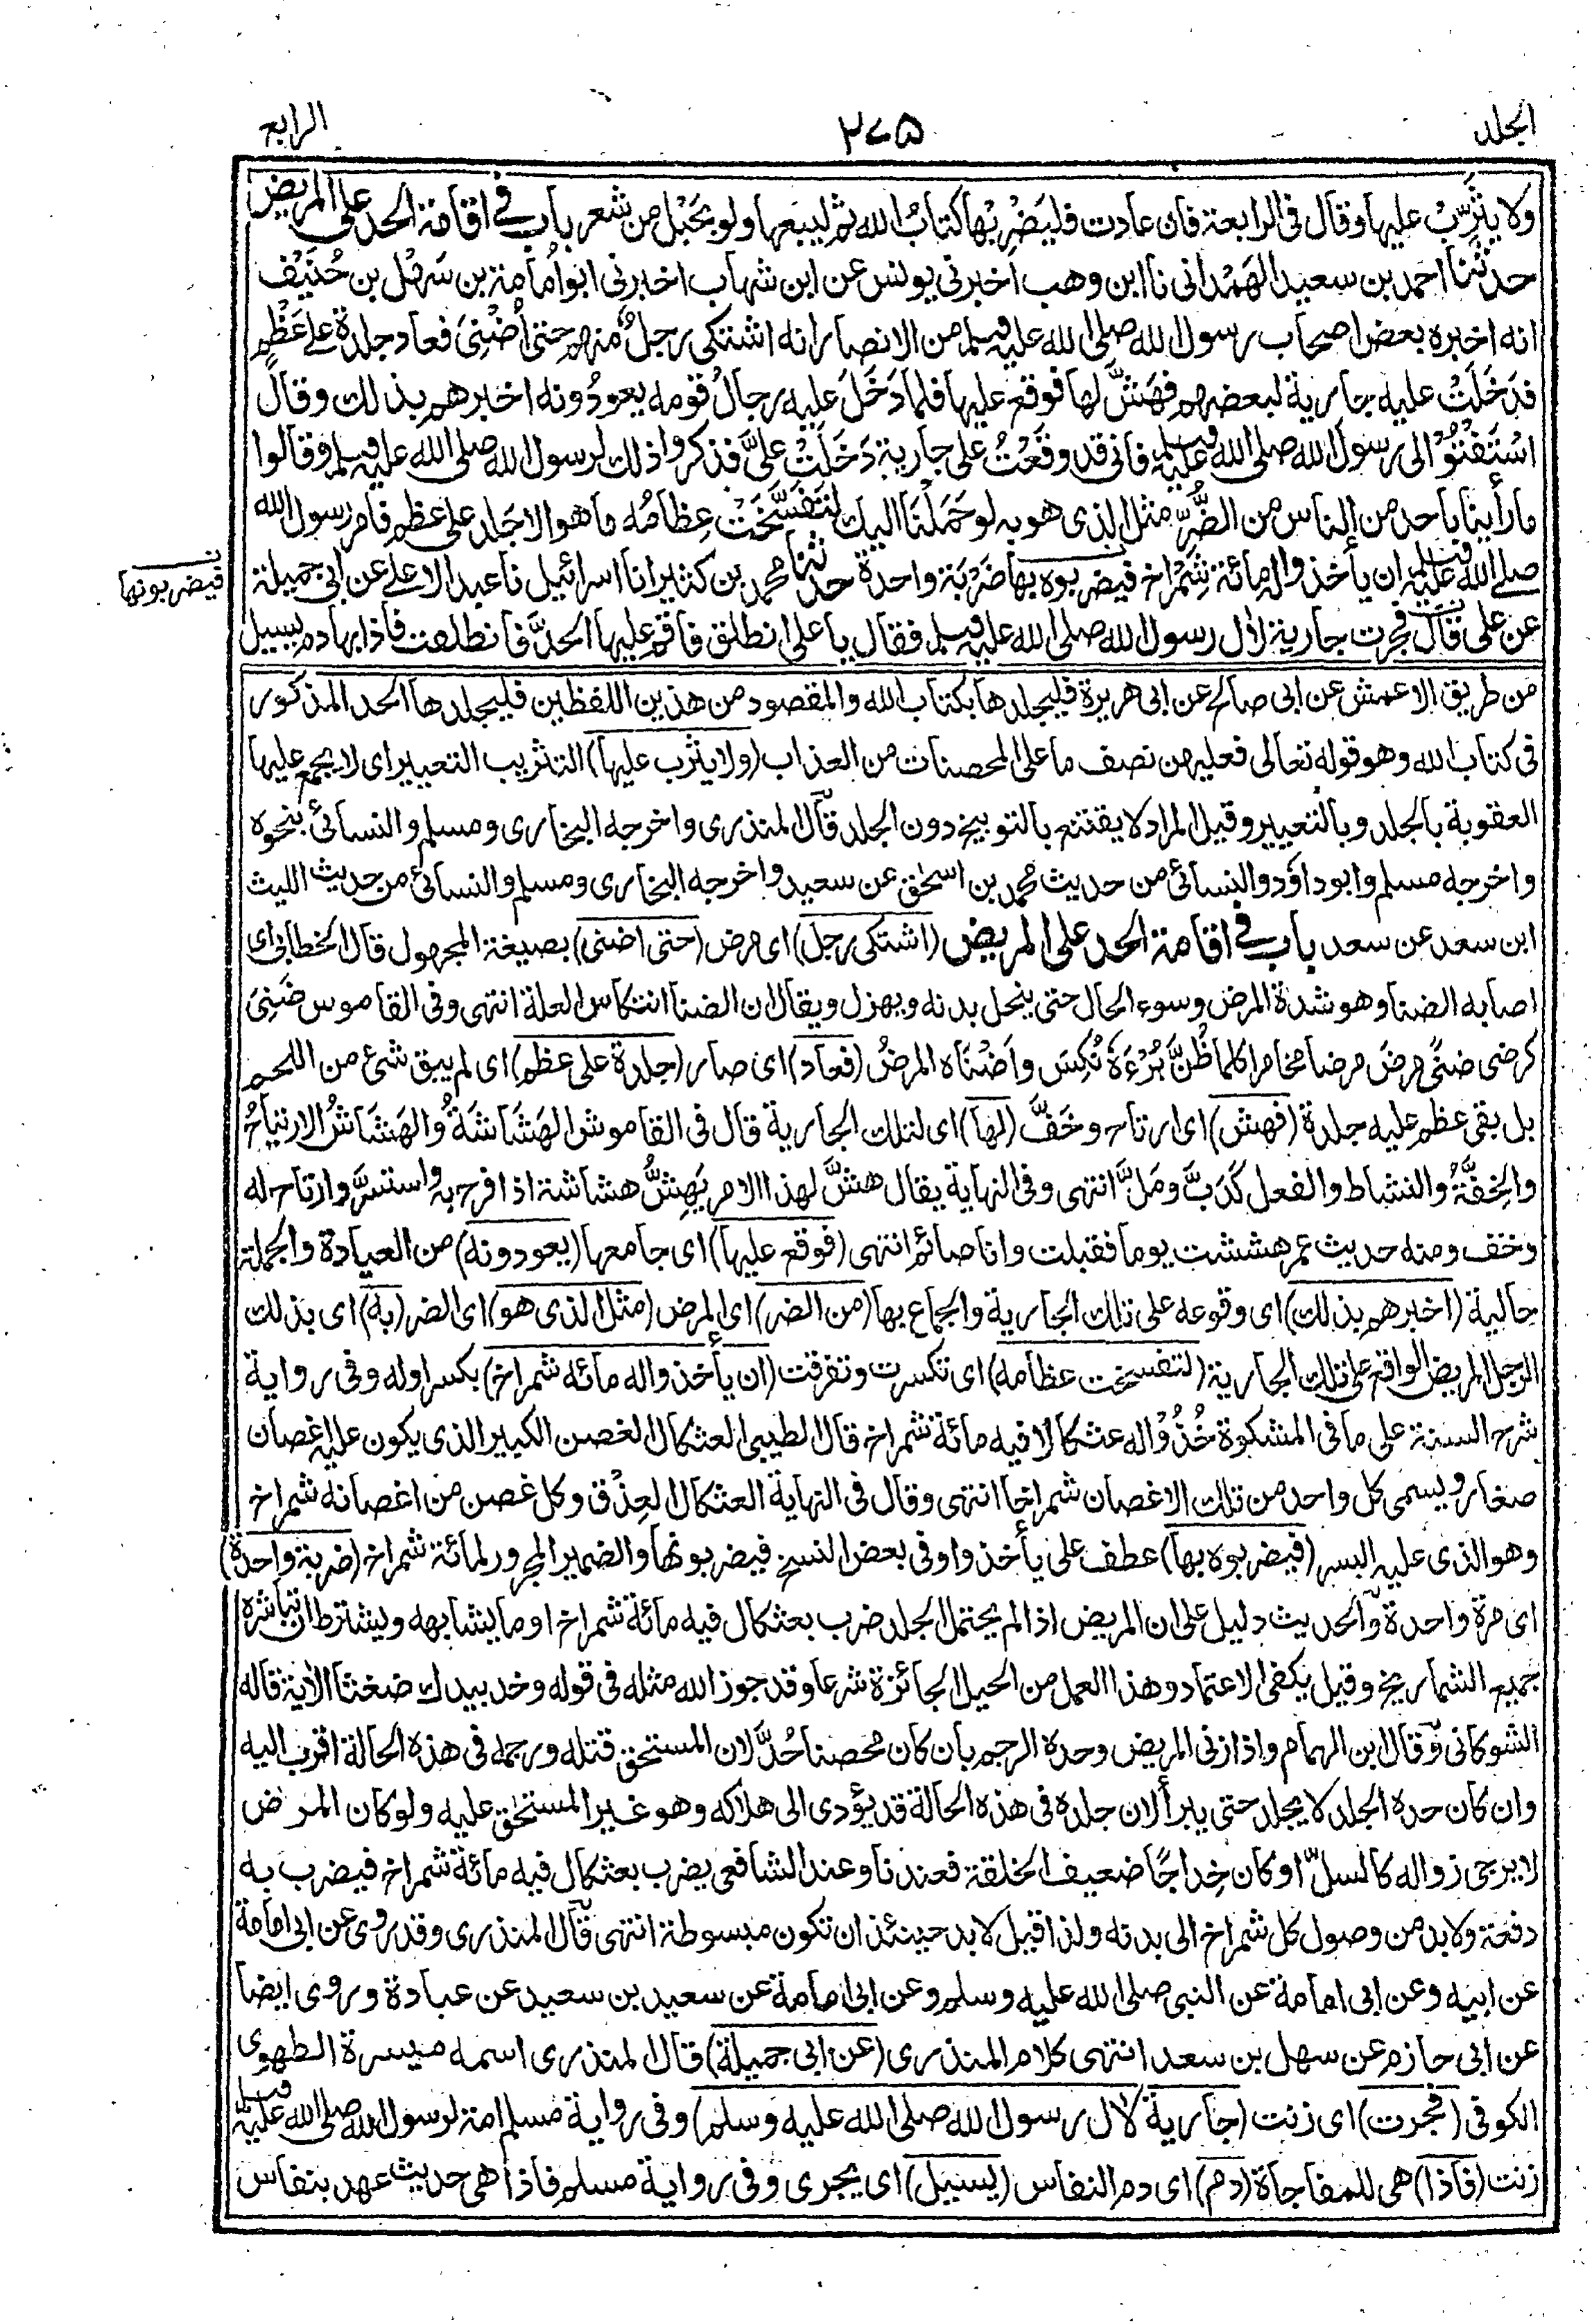 الجلد
٢٧٥
الرابع
ولا يُثَرِّبْ عليها وقال فى الرابعة فان عادت فليَضْرِبْها كتابُ الله ثم ليبعها ولو بحَبْل من شعر باب فى اقامة الحد على المريض
حدثنا احمد بن سعيد الهَمْدانى نا ابن وهب اخبرنى يونس عن ابن شهاب اخبرنى ابو أُمامة بن سَهْل بن حُنَيْف
انه اخبره بعض اصحاب رسول الله صلى الله عليه وسلم من الانصار انه اشتكى رجلٌ منهم حتى أُضْنِىَ فعاد جلدة على عَظْمٍ
فدَخَلَتْ عليه جارية لبعضهم فهَشَّ لها فوقع عليها فلما دَخَلَ عليه رجالُ قومه يعودُونه اخبرهم بذلك وقال
اسْتَفْتُوْا لى رسول الله صلى الله عليه وسلم فانى قد وقَعْتُ على جارية دَخَلَتْ علىَّ فذكروا ذلك لرسول الله صلى الله عليه وسلم وقالوا
ما رأينا باحد من الناس من الضُّرِّ مثل الذى هو به لو حَمَلْنَا اليك لتَفَسَّخَتْ عِظامُه ما هو الا جَلد على عظم فامر رسول الله
صلى الله عليه وسلم ان يأخذوا له مائة شِمْراخ فيضربوه بها ضَرْبَة واحدة حدثنا محمد بن كثير انا اسرائيل نا عبد الاعلى عن ابى جميلة
فيضربونها
عن على قال فجرت جارية لاٰل رسول الله صلى الله عليه وسلم فقال يا على انطلق فاقم عليها الحدَّ فانطلقت فاذا بها دم يسيل
من طريق الاعمش عن ابى صالح عن ابى هريرة فليجلدها بكتاب الله والمقصود من هذين اللفظين فليجلدها الحد المذكور
فى كتاب الله وهو قوله تعالى فعليهن نصف ما على المحصنات من العذاب (ولا يثرب عليها) التثريب التعيير اى لا يجمع عليها
العقوبة بالجلد وبالتعيير وقيل المراد لا يقتنع بالتوبيخ دون الجلد قال المنذرى واخرجه البخارى ومسلم والنسائى بنحوه
واخرجه مسلم وابو داؤد والنسائى من حديث محمد بن اسحٰق عن سعيد واخرجه البخارى ومسلم والنسائى من حديث الليث
ابن سعد عن سعد باب فى اقامة الحد على المريض (اشتكى رجل) اى مرض (حتى اضنى) بصيغة المجهول قال الخطابى اى
اصابه الضنا وهو شدة المرض وسوء الحال حتى ينحل بدنه ويهزل ويقال ان الضنا انتكاس العلة انتهى وفى القاموس ضَنِىَ
كرضى ضنًى مرِضَ مرضا مخامرا كلما ظُنَّ بُرْءَهٗ نُكِسَ واَضْنَاه المرضُ (فعاد) اى صار (جلدة على عظم) اى لم يبق شئ من اللحم
بل بقى عظم عليه جلدة (فهش) اى ارتاح وخَفَّ (لها) اى لتلك الجارية قال فى القاموس الهَشَاشَةُ والهَشَاشُ الارتياحُ
والخِفَّةُ والنشاط والفعل كدَبَّ ومَلَّ انتهى وفى النهاية يقال هشَّ لهذا الامر يَهِشُّ هشاشة اذا فرح به واستسرَّ وارتاح له
وخف ومنه حديث عمر هششت يوما فقبلت وانا صائم انتهى (فوقع عليها) اى جامعها (يعودونه) من العيادة والجملة
حالية (اخبرهم بذلك) اى وقوعه على تلك الجارية والجماع بها (من الضر) اى المرض (مثل الذى هو) اى الضر (به) اى بذلك
الرجل المريض الواقع على تلك الجارية (لتفسخت عظامه) اى تكسرت وتفرقت (ان يأخذوا له مائه شمراخ) بكسر اوله وفى رواية
شرح السنة على ما فى المشكوة خُذُوْا له عثكالا فيه مائة شمراخ قال الطيبى العثكال الغصن الكبير الذى يكون عليه اغصان
صغار ويسمى كل واحد من تلك الاغصان شمراخا انتهى وقال فى النهاية العثكال العِذْق وكل غصن من اغصانه شمراخ
وهو الذى عليه البسر (فيضربوه بها) عطف على يأخذوا وفى بعض النسخ فيضربونها والضمير المجرور لمائة شمراخ (ضربة واحدة)
اى مرة واحدة والحديث دليل على ان المريض اذا لم يحتمل الجلد ضرب بعثكال فيه مائة شمراخ او ما يشابهه ويشترط ان تباشره
جميع الشماريخ وقيل يكفى الاعتماد وهذا العمل من الحيل الجائزة شرعا وقد جوز الله مثله فى قوله وخذ بيدك ضغثا الاٰية قاله
الشوكانى وقال ابن الهمام واذا زنى المريض وحده الرجم بان كان محصنا حُدَّ لان المستحق قتله ورجمه فى هذه الحالة اقرب اليه
وان كان حده الجلد لا يجلد حتى يابرأ لان جلده فى هذه الحالة قد يؤدى الى هلاكه وهو غير المستحق عليه ولو كان المرض
لا يرجى زواله كالسلّ او كان خِداجًا ضعيف الخلقة فعندنا وعند الشافعى يضرب بعثكال فيه مائة شمراخ فيضرب به
دفعة ولا بد من وصول كل شمراخ الى بدنه ولذا قيل لا بد حينئذ ان تكون مبسوطة انتهى قال المنذرى وقد روى عن ابى امامة
عن ابيه وعن ابى امامة عن النبى صلى الله عليه وسلم وعن ابى امامة عن سعيد بن سعيد عن عبادة وروى ايضا
عن ابى حازم عن سهل بن سعد انتهى كلام المنذرى (عن ابى جميلة) قال المنذرى اسمه ميسرة الطهوى
الكوفى (فجرت) اى زنت (جارية لاٰل رسول الله صلى الله عليه وسلم) وفى رواية مسلم امة لرسول الله صلى الله عليه وسلم
زنت (فاذا) هى للمفاجاة (دم) اى دم النفاس (يسيل) اى يجرى وفى رواية مسلم فاذا هى حديث عهد بنفاس